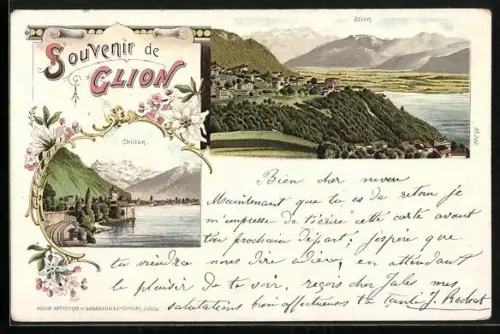 Souvenir de
GLION
Glion
Chillon.
Bien cher neveu
Maintenant que tu es de retour je
m'empresse de t'écrire cette carte avant
ton prochain départ, j'espère que
tu viendras nous dire adieu, en attendant
le plaisir de te voir, reçois cher Jules mes
salutations bien affectueuses ta tante J. Rochat